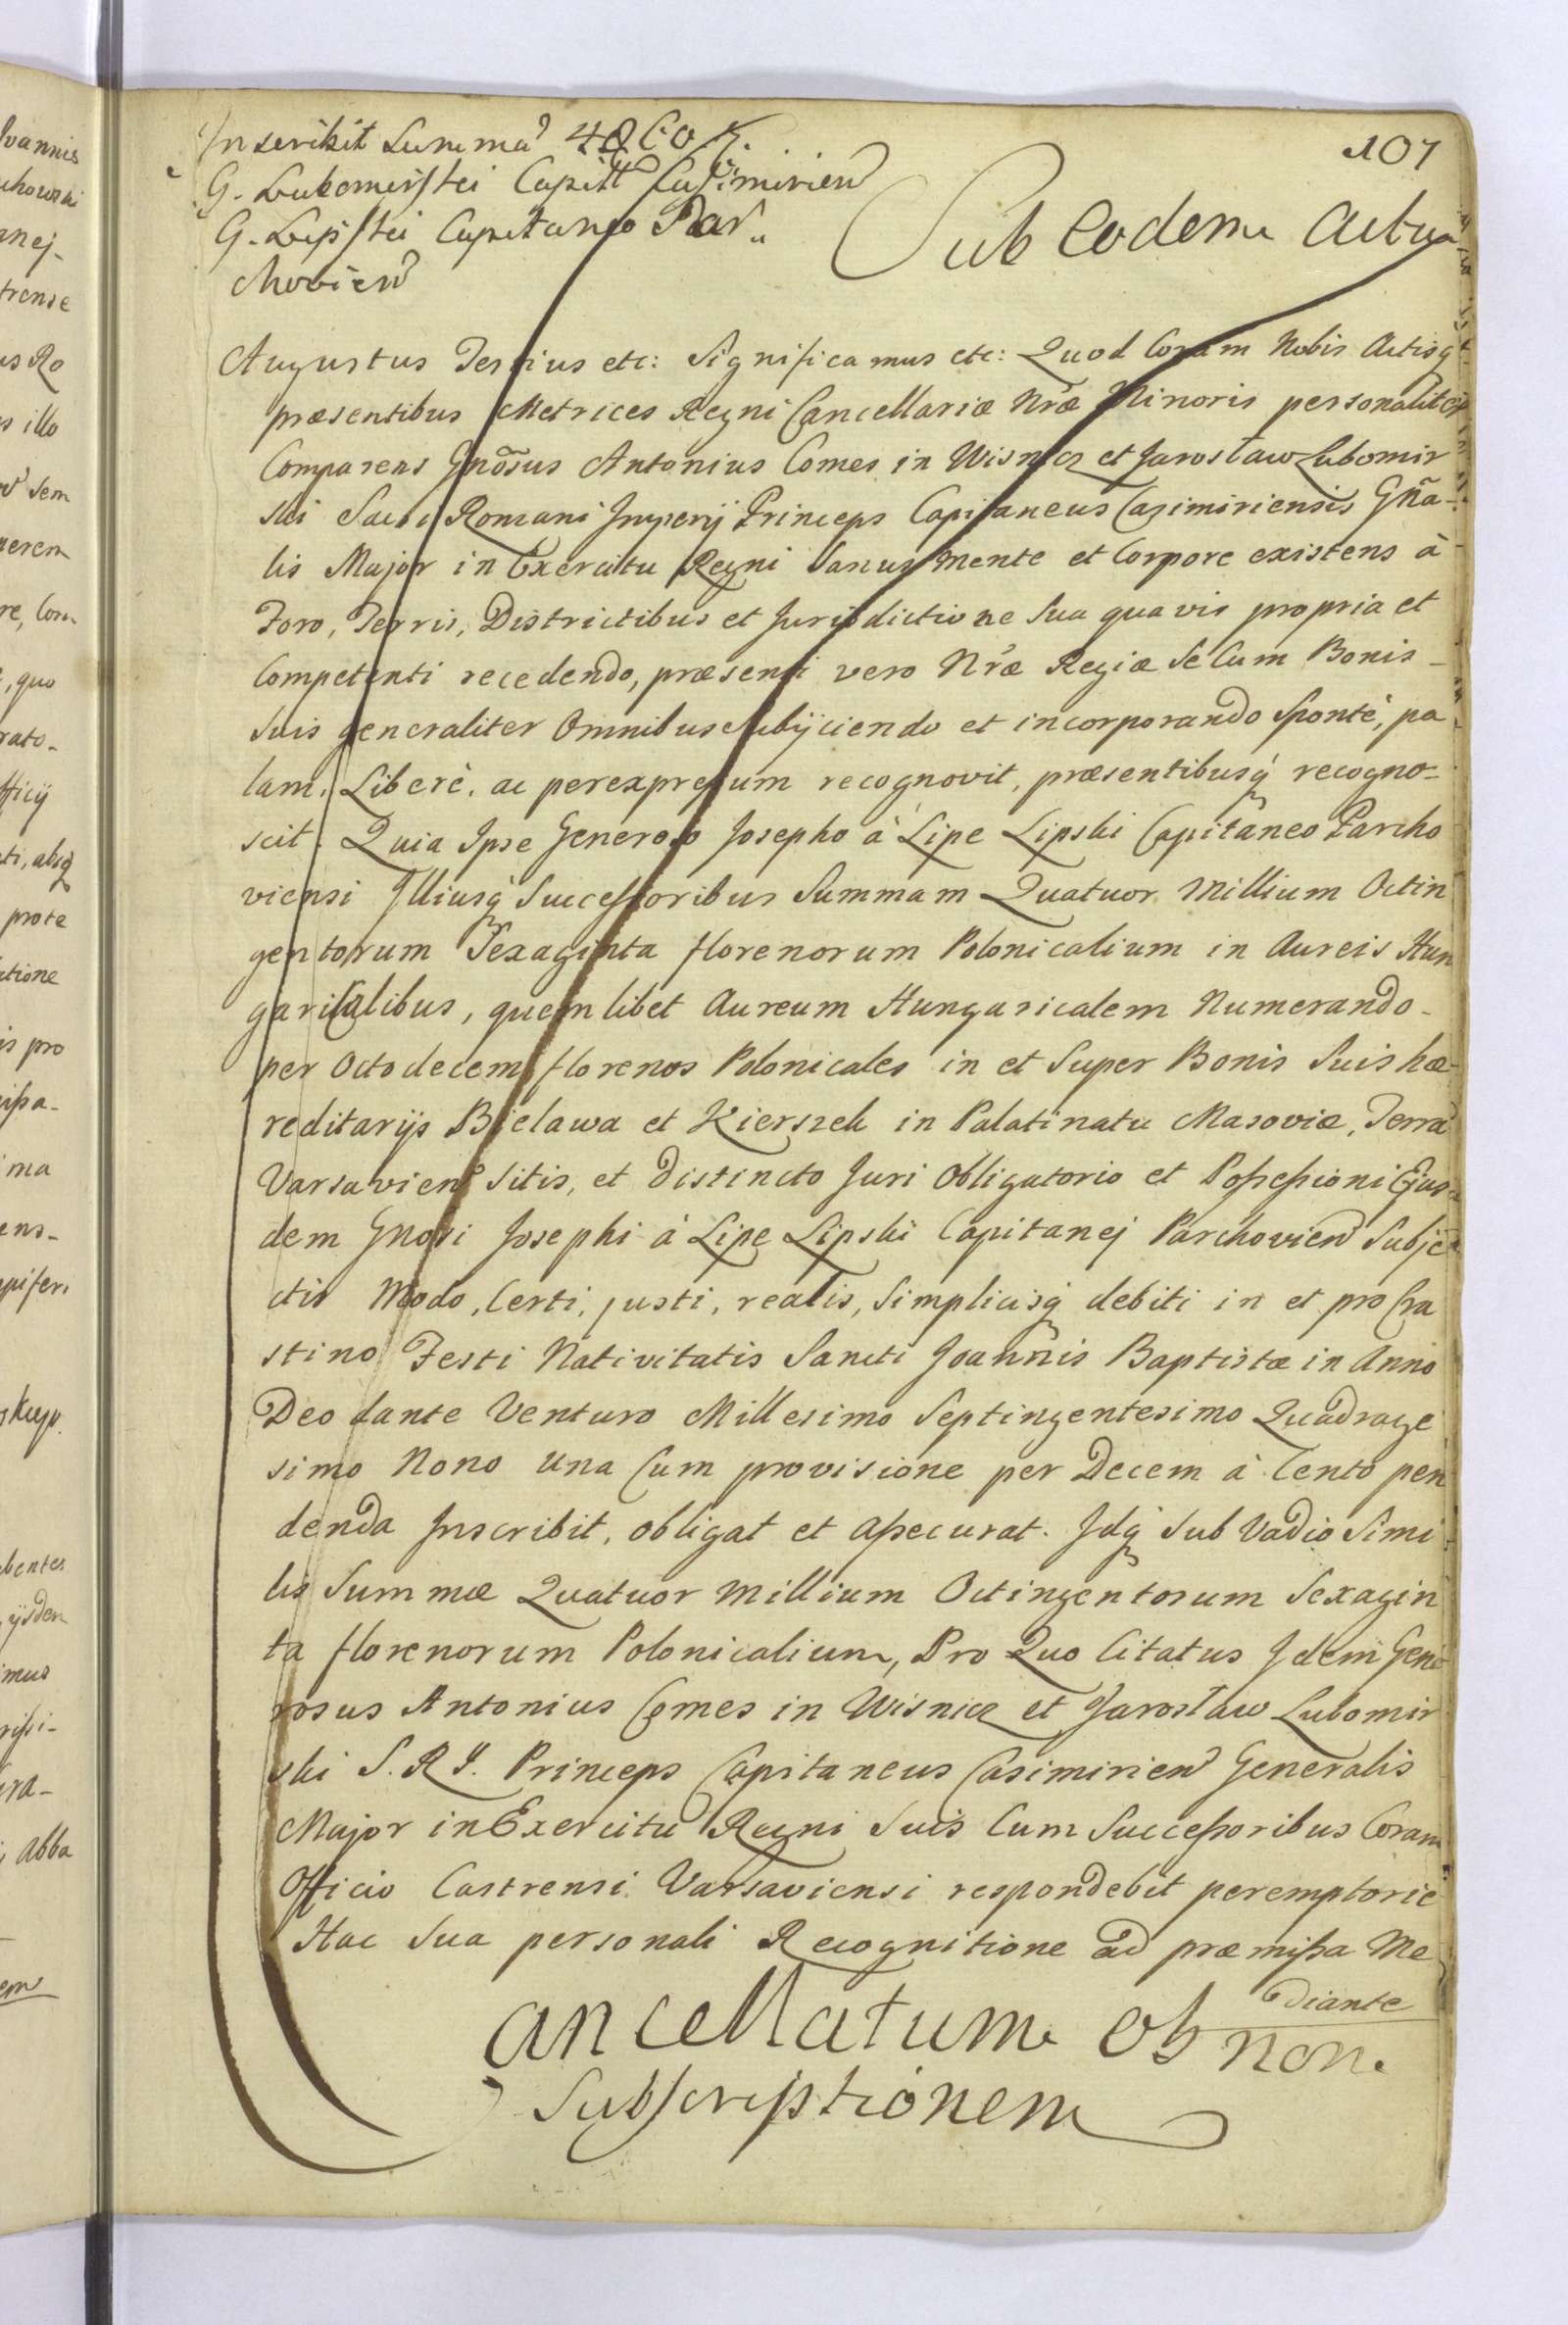 Inscribit Summa 4860 f.
G. Lubomirski Capitt Casimirien
G. Lipski Capitaneo Par„
chovien
107
Sub Eodem Actu
Augustus Tertius etc: Significamus etc: Quod Coram Nobis Actisq
præsentibus Metrices Regni Cancellariæ Nræ Minoris personaliter
Comparens Gnõsus Antonius Comes in Wisnicz et Jarosław Lubomir
ski Sacri Romani Imperij Princeps Capitaneus Casimiriensis Gña-
lis Major in Exercitu Regni Sanus mente et Corpore existens à
Foro, Terris, Districtibus et Jurisdictione Sua quavis propria et
Competenti recedendo, præsenti vero Nræ Regiæ Se Cum Bonis-
Suis generaliter Omnibus Subijciendo et incorporando Sponté, pa
lam, Liberè, ac perexpressum recognovit, præsentibusq recogno-
scit. Quia Ipse Generoso Josepho à Lipe Lipski Capitaneo Parcho
viensi Illiusq Successoribus Summam Quatuor Millium Octin
gentorum Sexaginta florenorum Polonicalium in Aureis Hun
garicalibus, quemlibet Aureum Hungaricalem Numerando-
per Octodecem florenos Polonicales in et Super Bonis Suis hæ-
reditarijs Bielawa et Kierszek in Palatinatu Masoviæ, Terra
Varsavien sitis, et distincto Juri Obligatorio et Possessioni Ejus
dem Gnosi Josephi à Lipe Lipski Capitanej Parchovien Subje
ctis Modo, Certi, justi, realis, Simplicisq debiti in et pro Cra
stino Festi Nativitatis Sancti Joannis Baptistæ in Anno
Deo dante Venturo Millesimo Septingentesimo Quadrage
simo Nono Una Cum provisione per Decem à Cento pen
denda Inscribit, obligat et assecurat. Idq Sub Vadio Simi
lis Summæ Quatuor Millium Octingentorum Sexagin
ta florenorum Polonicalium, Pro Quo Citatus Idem Gene
rosus Antonius Comes in Wisnicz et Jarosław Lubomir
ski S. R I. Princeps Capitaneus Casimirien Generalis
Major in Exercitu Regni Suis Cum Successoribus Coram
Officio Castrensi Varsaviensi respondebit peremptorie
Hac Sua personali Recognitione ad præmissa Me
diante
Cancellatum Ob non
Subscriptionem